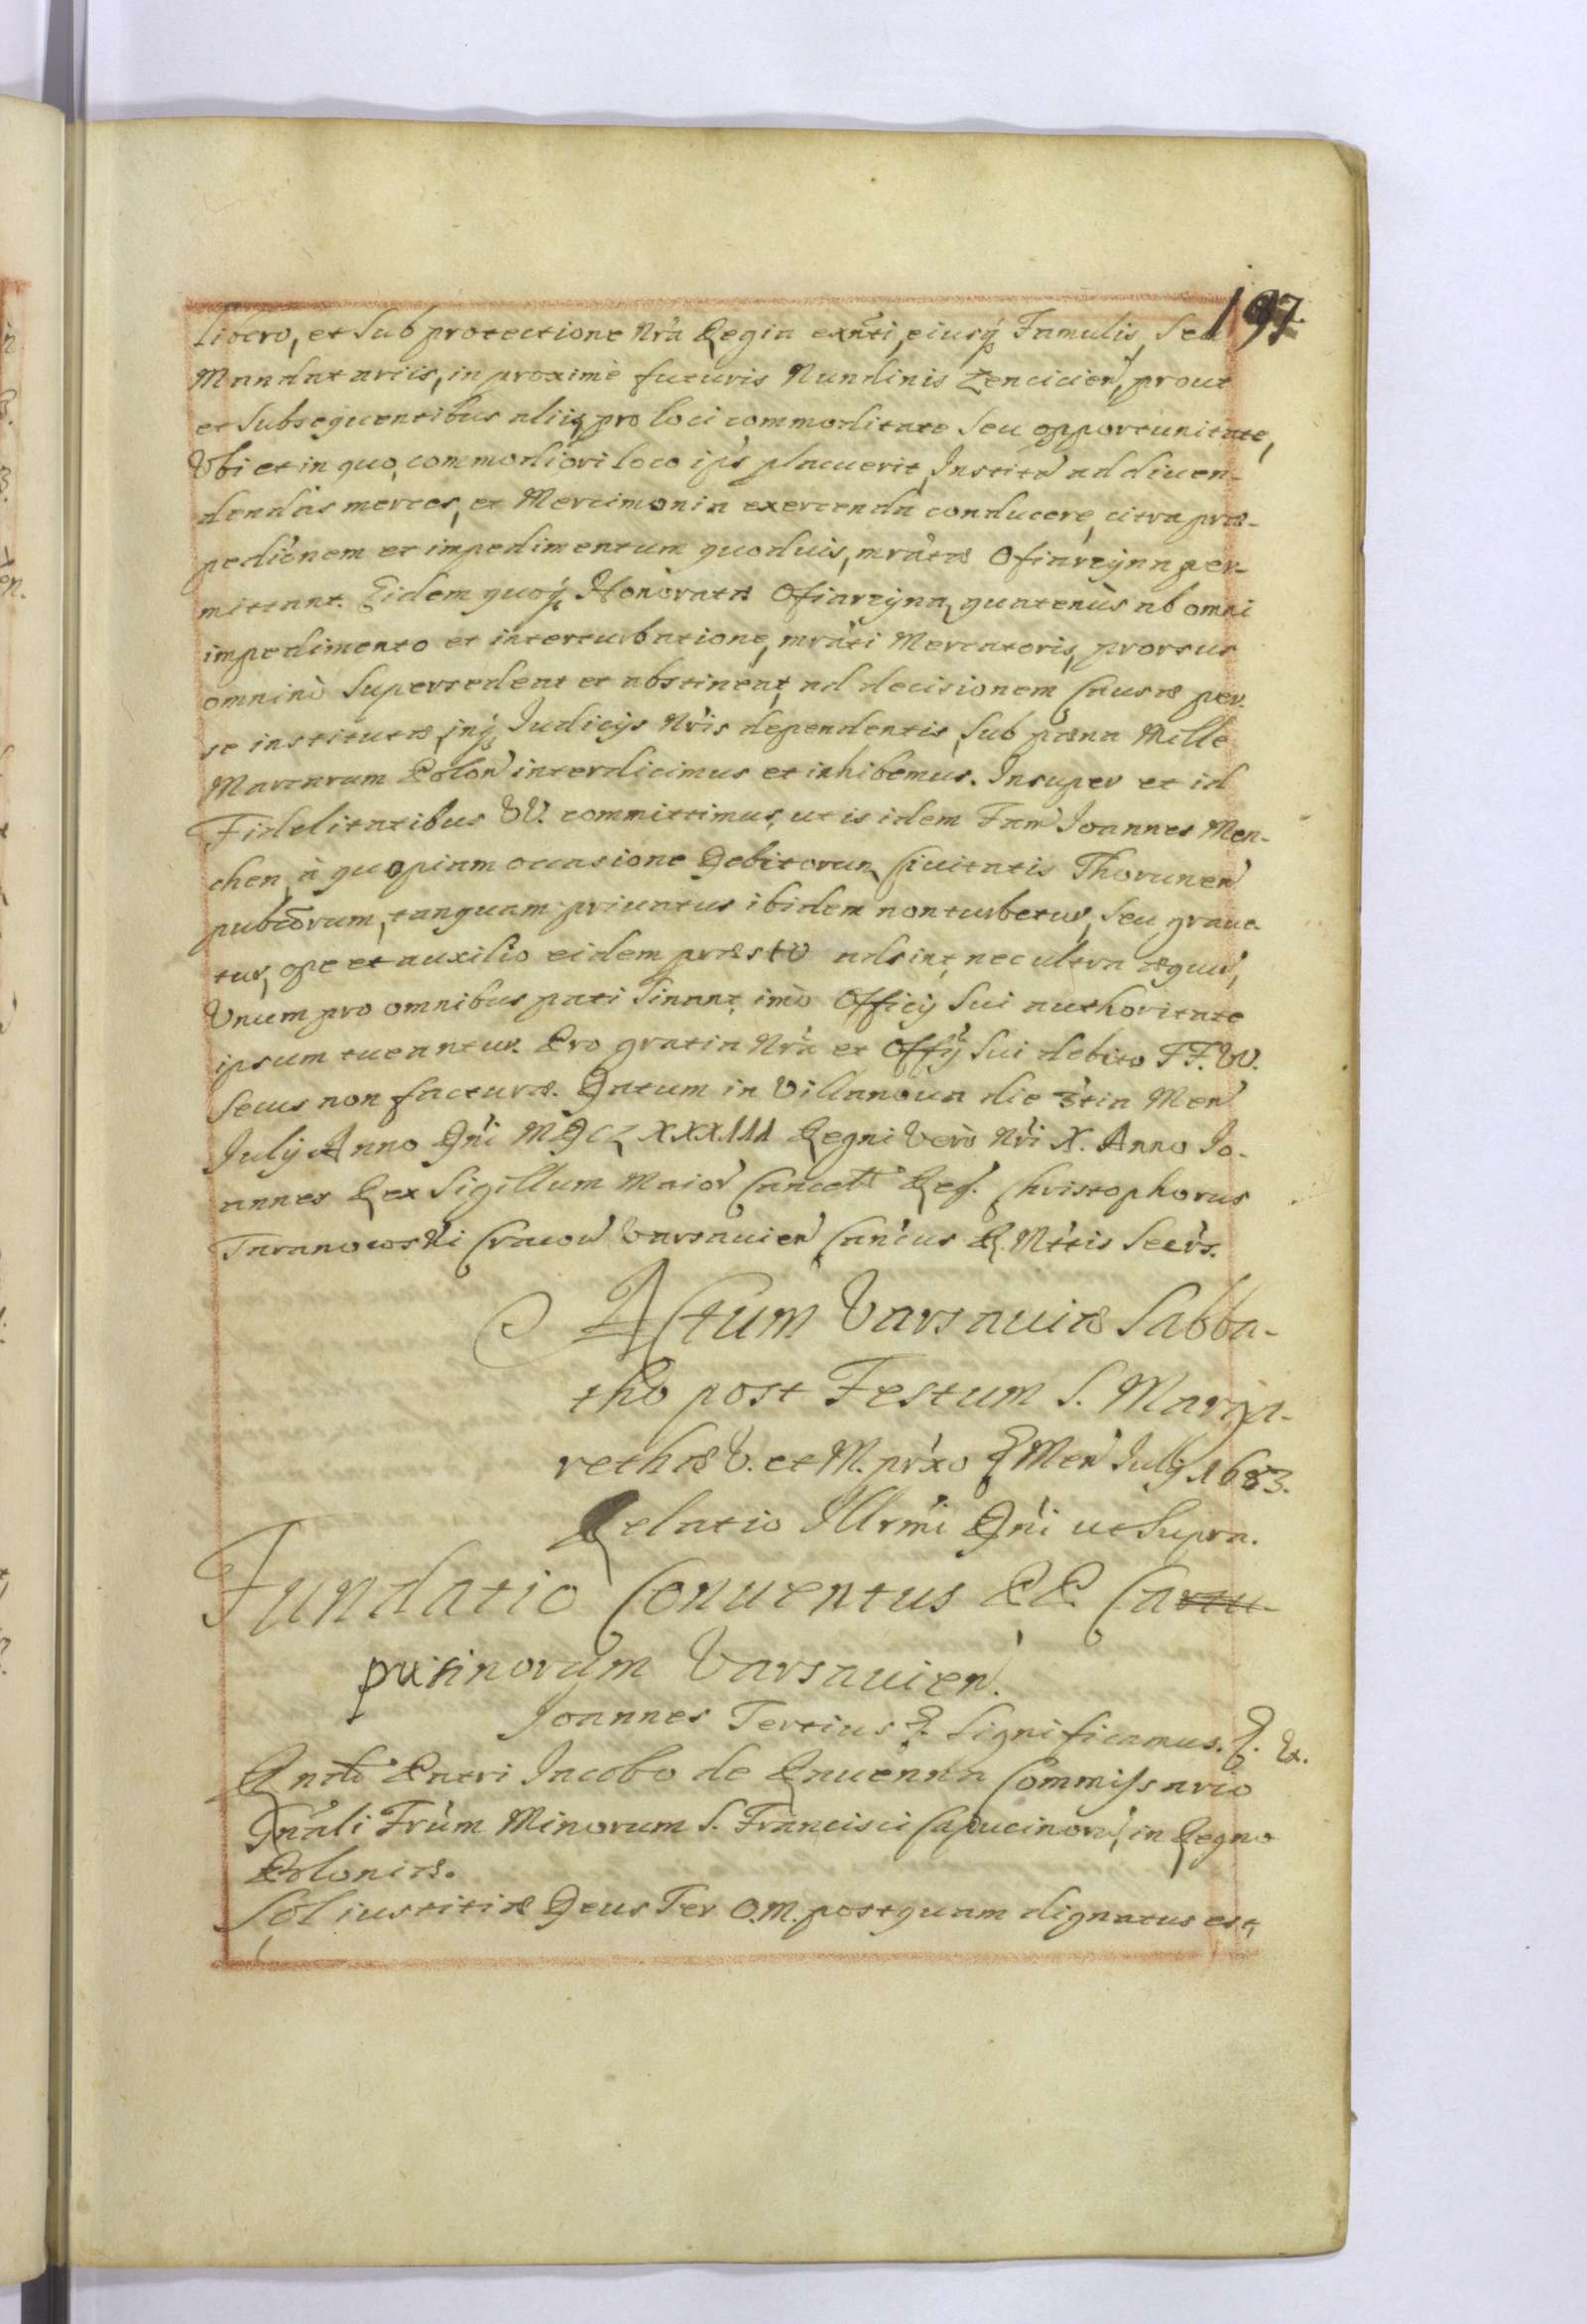 197.
libero, et Sub protectione Nra Regia exnti, eiusq Famulis, Seu
Mandatariis, in proximè futuris Nundinis Lencicien, prout
et Subsequentibus aliis, pro loci commoditate Seu opportunitate,
Vbi et in quo, commodiori loco ips placuerit, Institã ad diuen-
dendas merces, et Mercimonia exercenda conducere, citra præ-
pedionem et impedimentum quoduis, mratæ Ofiarzyna per-
mittant. Eidem quoq Honoratæ Ofiarzyna, quatenùs ab omni
impedimento et interturbatione, mrati Mercatoris, prorsus
omninò Supersedeat et abstineat, ad decisionem Causæ per
se institutæ, inq Iudicijs Nris dependentis, Sub pæna Mille
Marcarum Polon interdicimus et inhibemus. Insuper et id
Fidelitatibus VV. committimus, ut is idem Fam Joannes Men-
chen, à quopiam occasione Debitorum Ciuitatis Thorunen
pubcorum, tanquam priuatus ibidem non turbetur, Seu graue-
tur, ope et auxilio eidem præsto adsint, nec ultra æquu,
Vnum pro omnibus pati Sinant, imò Officij Sui authoritate
ipsum tueantur. Pro gratia Nra et Offij Sui debito FF. VV.
Secus non facturæ. Datum in Villanoua die 3tia Men
Julij Anno Dni MDCLXXXIII Regni verò Nri X. Anno Jo-
annes Rex Sigillum Maior Cancell Reg. Christophorus
Taranowski Cracou Varsauien Canicus R. Mttis Secrs.
Actum Varsauiæ Sabba-
tho post Festum S. Marga-
rethæ V. et M. prxo Men Julij 1683.
Relatio Illrmi Dni ut Supra.
Fundatio Conuentus PP. Ca
pucinorum Varsauien.
Joannes Tertius Significamus.
Rndo Patri Jacobo de Rauenna Commissario
Gnali Frum Minorum S. Francisci Capucinoru, in Regno
Poloniæ.
Sol iustitiæ Deus Ter O.M. postquam dignatus est,